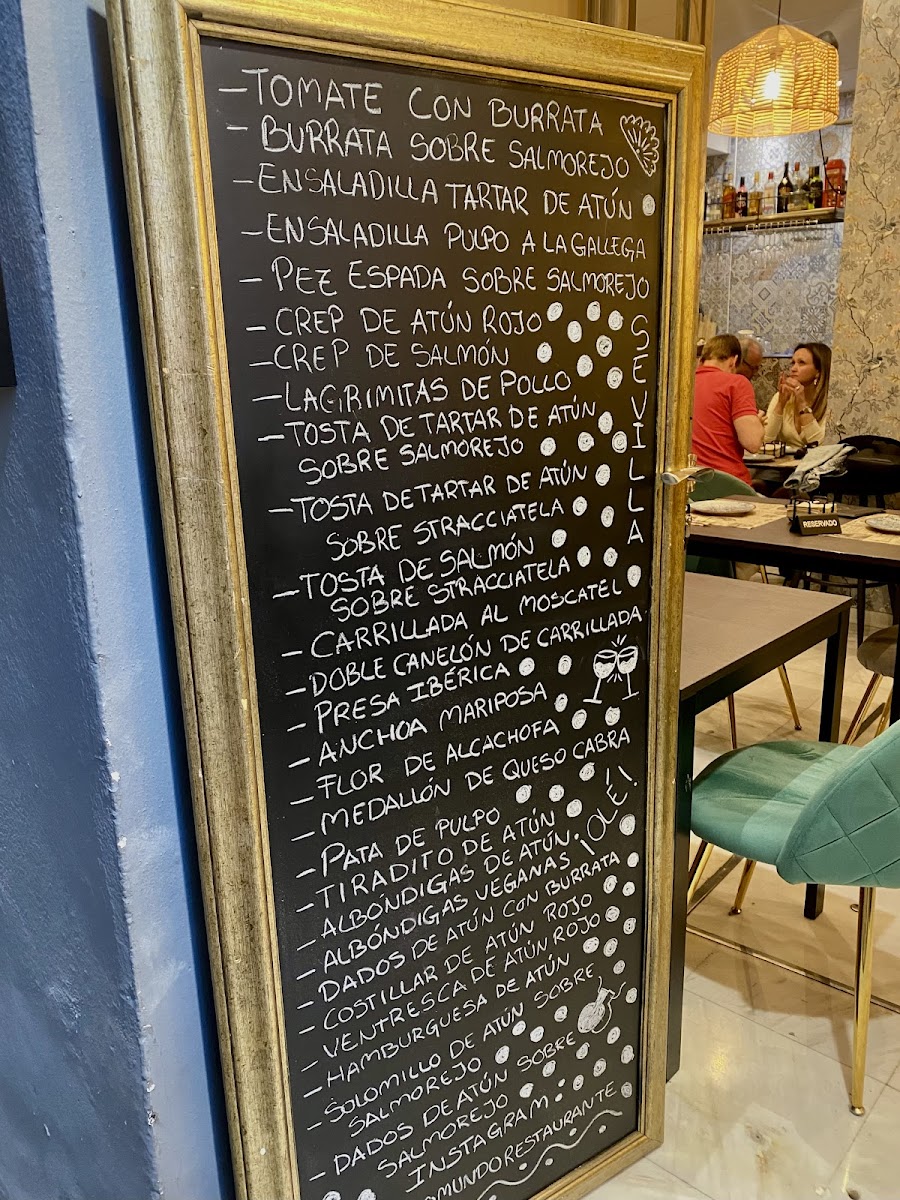 - TOMATE CON BURRATA
- BURRATA SOBRE SALMOREJO
- ENSALADILLA TARTAR DE ATÚN
- ENSALADILLA PULPO A LA GALLEGA
- PEZ ESPADA SOBRE SALMOREJO
- CREP DE ATÚN ROJO
- CREP DE SALMÓN
- LAGRIMITAS DE POLLO
- TOSTA DE TARTAR DE ATÚN
SOBRE SALMOREJO
- TOSTA DE TARTAR DE ATÚN
SOBRE STRACCIATELA
- TOSTA DE SALMÓN
SOBRE STRACCIATELA
- CARRILLADA AL MOSCATEL
- DOBLE CANELÓN DE CARRILLADA
- PRESA IBÉRICA
- ANCHOA MARIPOSA
- FLOR DE ALCACHOFA
- MEDALLÓN DE QUESO CABRA
- PATA DE PULPO
- TIRADITO DE ATÚN
- ALBÓNDIGAS DE ATÚN
- ALBÓNDIGAS VEGANAS
- DADOS DE ATÚN CON BURRATA
- COSTILLAR DE ATÚN ROJO
- VENTRESCA DE ATÚN ROJO
- HAMBURGUESA DE ATÚN
- SOLOMILLO DE ATÚN SOBRE
SALMOREJO
- DADOS DE ATÚN SOBRE
SALMOREJO
INSTAGRAM
MUNDO RESTAURANTE
SEVILLA
¡OLÉ!
RESERVADO